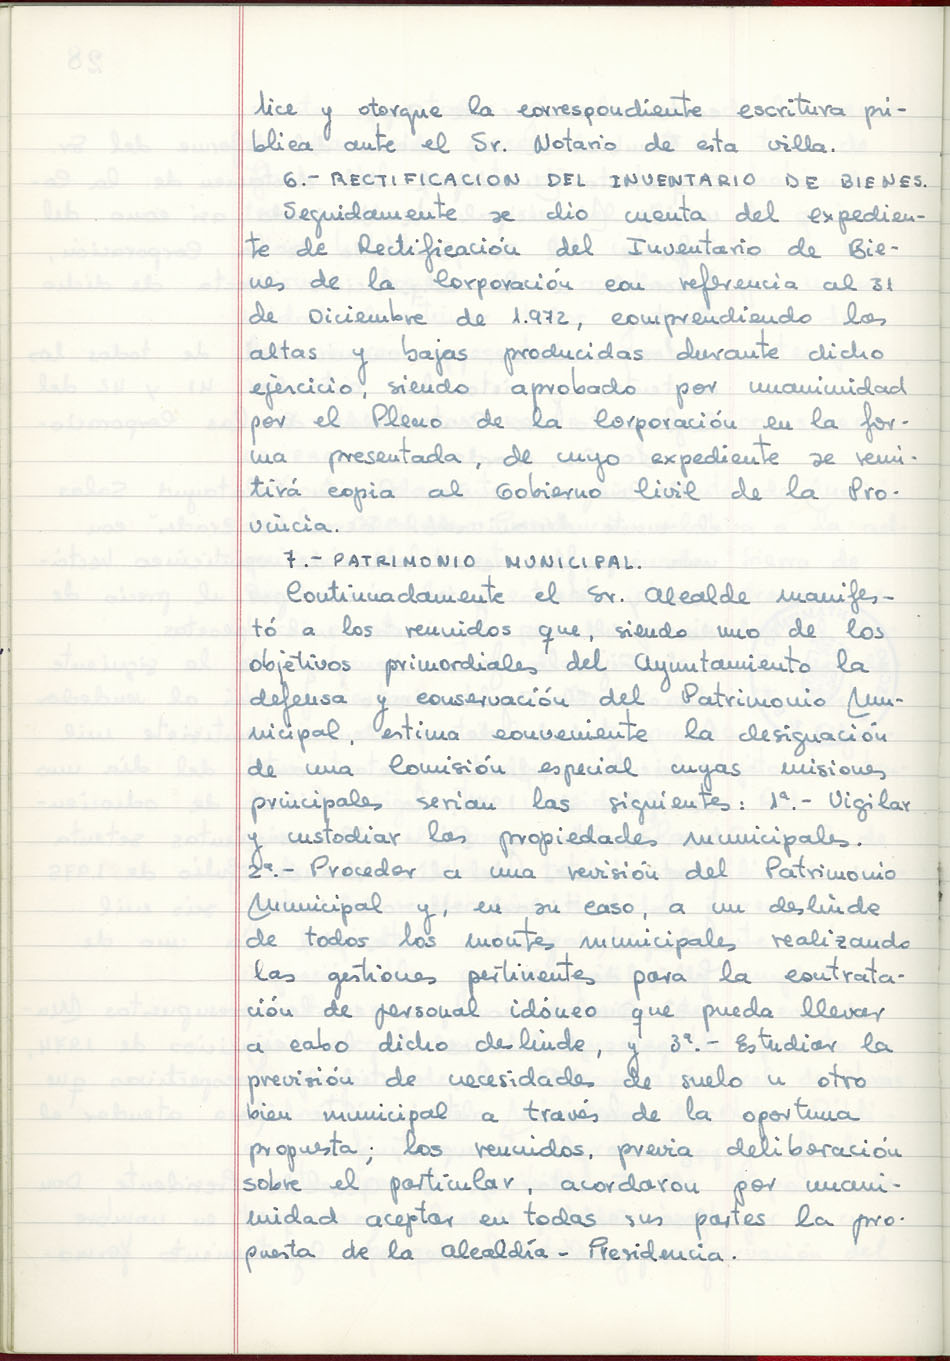 lice y otorgue la correspondiente escritura pú-
blica ante el Sr. Notario de esta villa.
6.- RECTIFICACION DEL INVENTARIO DE BIENES.
Seguidamente se dio cuenta del expedien-
te de Rectificación del Inventario de Bie-
nes de la Corporación con referencia al 31
de Diciembre de 1.972, comprendiendo las
altas y bajas producidas durante dicho
ejercicio, siendo aprobado por unanimidad
por el Pleno de la Corporación en la for-
ma presentada, de cuyo expediente se remi-
tirá copia al Gobierno Civil de la Pro-
vincia.
7.- PATRIMONIO MUNICIPAL.
Continuadamente el Sr. Alcalde manifes-
tó a los reunidos que, siendo uno de los
objetivos primordiales del Ayuntamiento la
defensa y conservación del Patrimonio Mu-
nicipal, estima conveniente la designación
de una Comisión especial cuyas misiones
principales serian las siguientes: 1ª.- Vigilar
y custodiar las propiedades municipales.
2ª.- Proceder a una revisión del Patrimonio
Municipal y, en su caso, a un deslinde
de todos los montes municipales realizando
las gestiones pertinentes para la contrata-
ción de personal idóneo que pueda llevar
a cabo dicho deslinde, y 3ª.- Estudiar la
previsión de necesidades de suelo u otro
bien municipal a través de la oportuna
propuesta; los reunidos, previa deliberación
sobre el particular, acordaron por unani-
midad aceptar en todas sus partes la pro-
puesta de la Alcaldía-Presidencia.